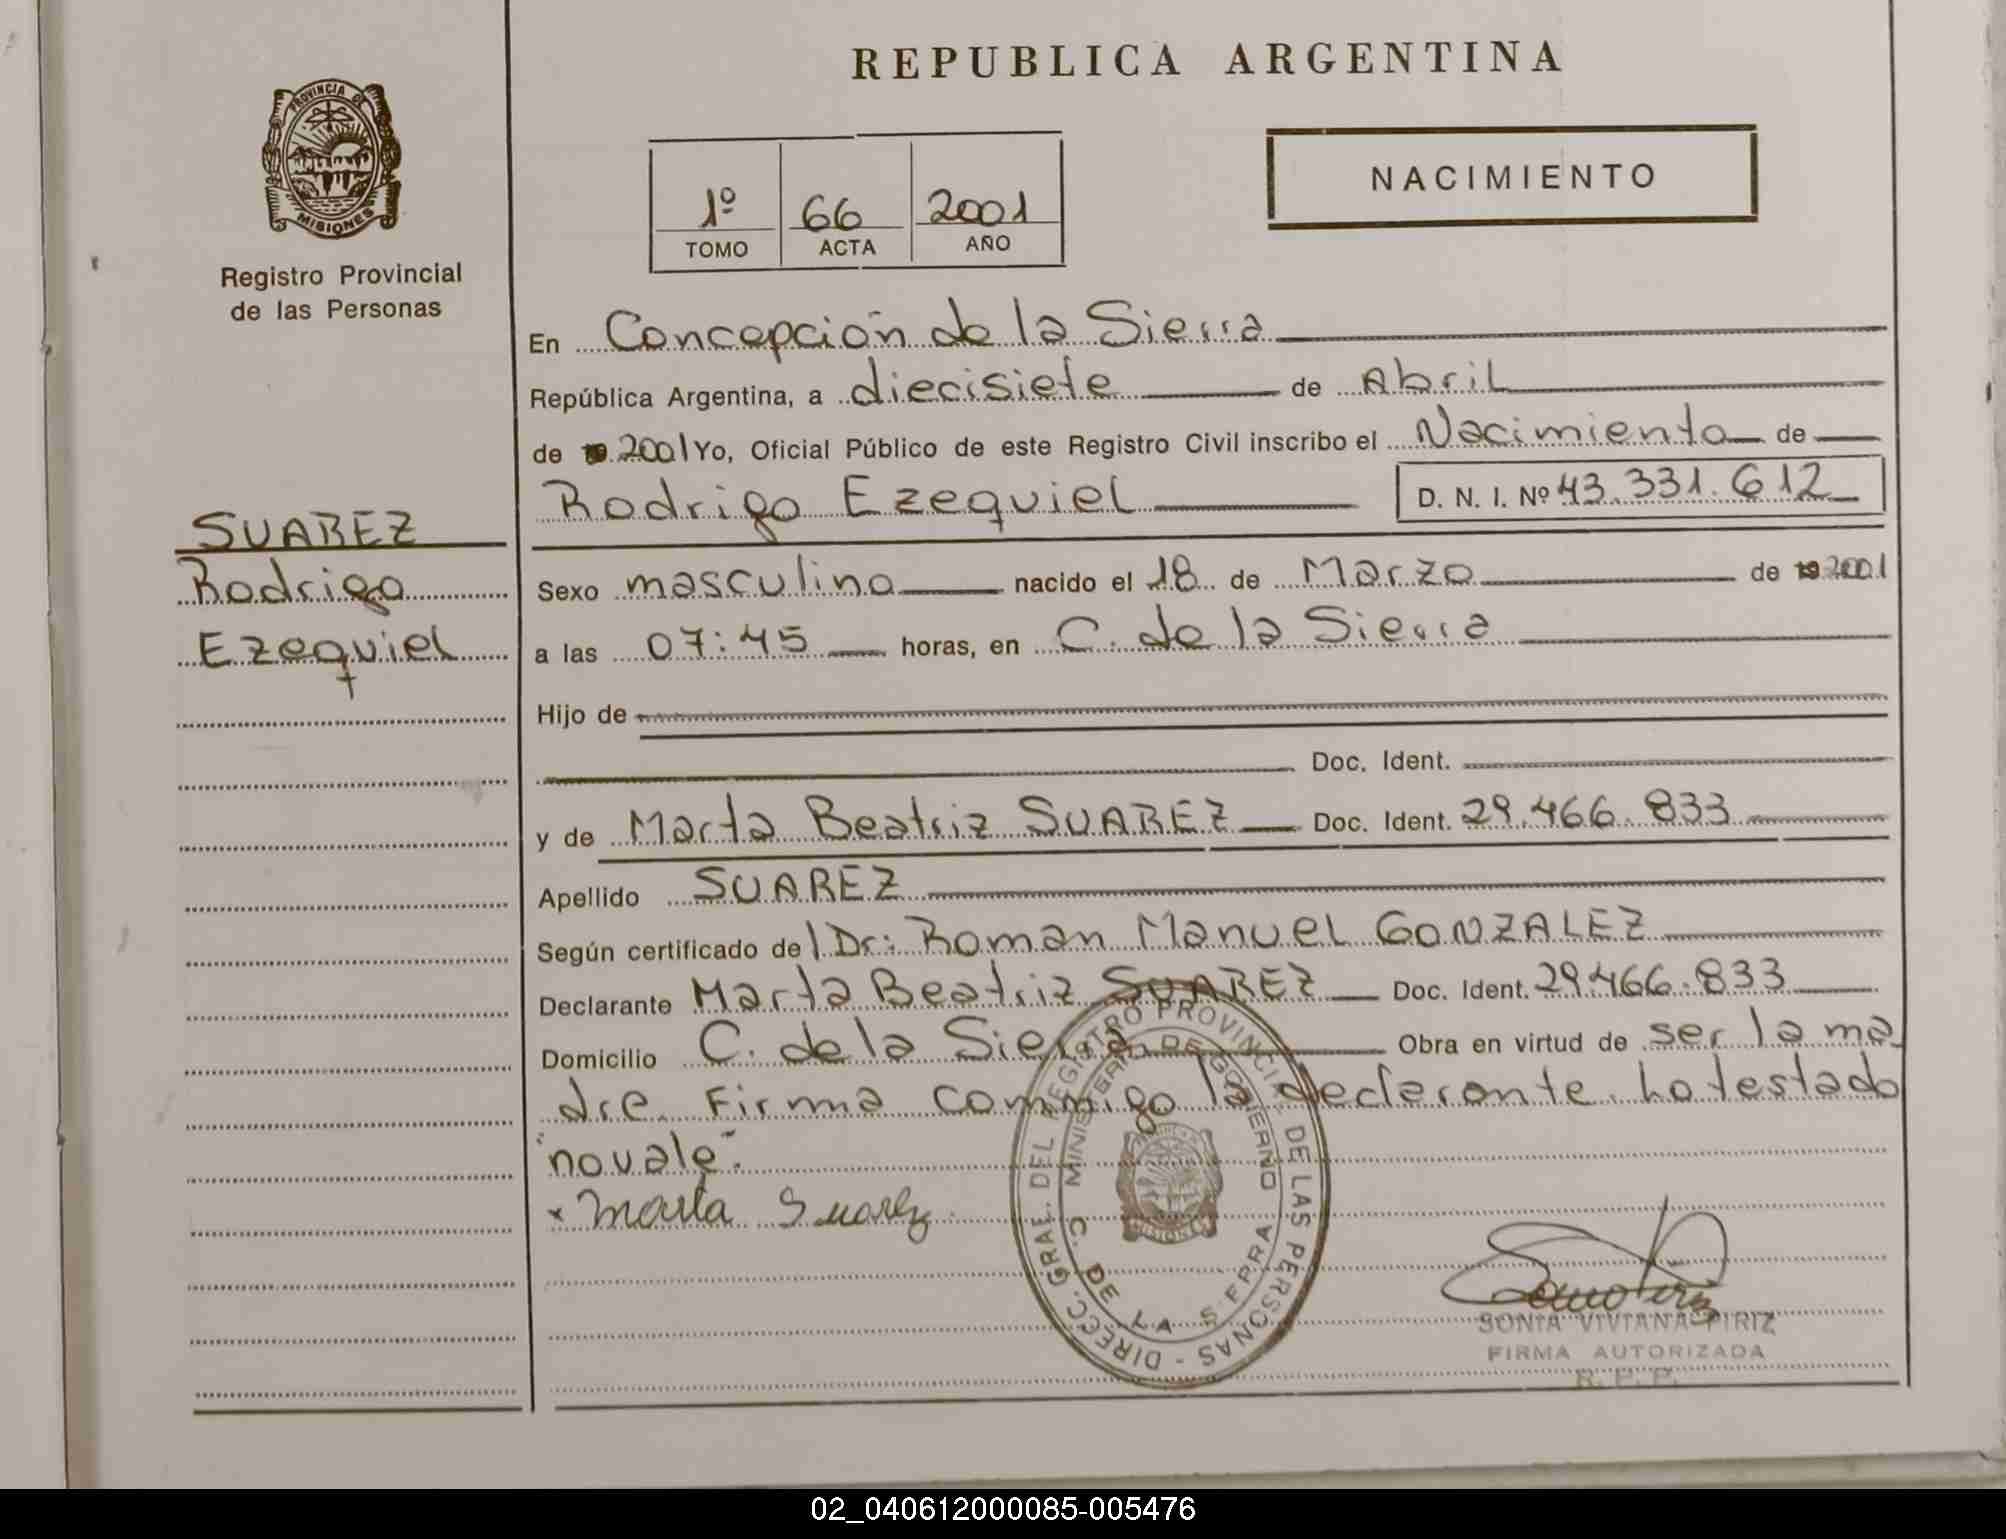 REPUBLICA ARGENTINA
PROVINCIA DE
MISIONES
Registro Provincial
de las Personas
1º 66 2001
TOMO ACTA AÑO
NACIMIENTO
SUAREZ
Rodrigo
Ezequiel
En Concepción de la Sierra
República Argentina, a diecisiete de Abril
de 2001 Yo, Oficial Público de este Registro Civil inscribo el Nacimiento de
Rodrigo Ezequiel D. N. I. Nº 43.331.612
Sexo masculino nacido el 18 de Marzo de 2001
a las 07:45 horas, en C. de la Sierra
Hijo de
Doc. Ident.
y de Marta Beatriz SUAREZ Doc. Ident. 29.466.833
Apellido SUAREZ
Según certificado de l Dr: Roman Manuel GONZALEZ
Declarante Marta Beatriz SUAREZ Doc. Ident. 29.466.833
Domicilio C. de la Sierra Obra en virtud de ser la ma
dre. Firma conmigo la declarante. Lo testado
"no vale".
x Marta Suarez
DIRECC. GRAL. DEL REGISTRO PROVINCIAL DE LAS PERSONAS -
MINIST. DE GOBIERNO
C. DE LA SIERRA
MISIONES
SONIA VIVIANA PIRIZ
FIRMA AUTORIZADA
R. P. P.
02_040612000085-005476